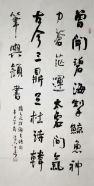 曾聞碧海掣鯨魚神
力蒼茫運太虛間氣
古今三鼎足杜詩韓
筆與顏書